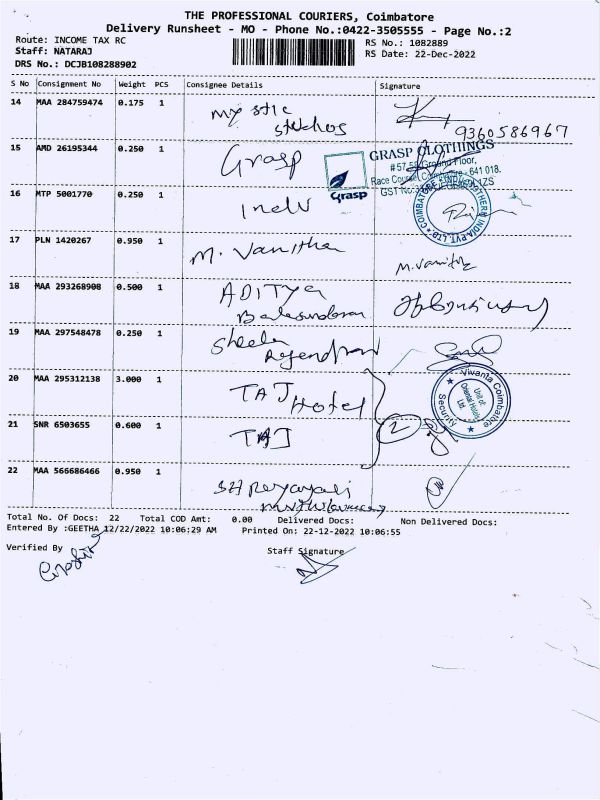 THE PROFESSIONAL COURIERS, Coimbatore
Delivery Runsheet - MO - Phone No.:0422-3505555 - Page No.:2
Route: INCOME TAX RC
Staff: NATARAJ
DRS No.: DCJB108288902
RS No.: 1082889
RS Date: 22-Dec-2022
S No Consignment No Weight PCS Consignee Details Signature
14 MAA 284759474 0.175 1 My stic studios
9360586967
15 AMD 26195344 0.250 1 Grasp
Grasp
GRASP CLOTHINGS
Ground Floor,
641 018.
16 MTP 5001770 0.250 1
17 PLN 1420267 0.950 1 M. Vanitha M. Vanitha
18 MAA 293268908 0.500 1 ADITYA
19 MAA 297548478 0.250 1 Sheela
20 MAA 295312138 3.000 1 TAJ Hotel
Vivanta Coimbatore
Unit of
Oriental Hotels
Ltd
Security
21 SNR 6503655 0.600 1 TAJ
2
22 MAA 566686466 0.950 1
Total No. Of Docs: 22 Total COD Amt: 0.00 Delivered Docs: Non Delivered Docs:
Entered By :GEETHA 12/22/2022 10:06:29 AM Printed On: 22-12-2022 10:06:55
Verified By Staff Signature